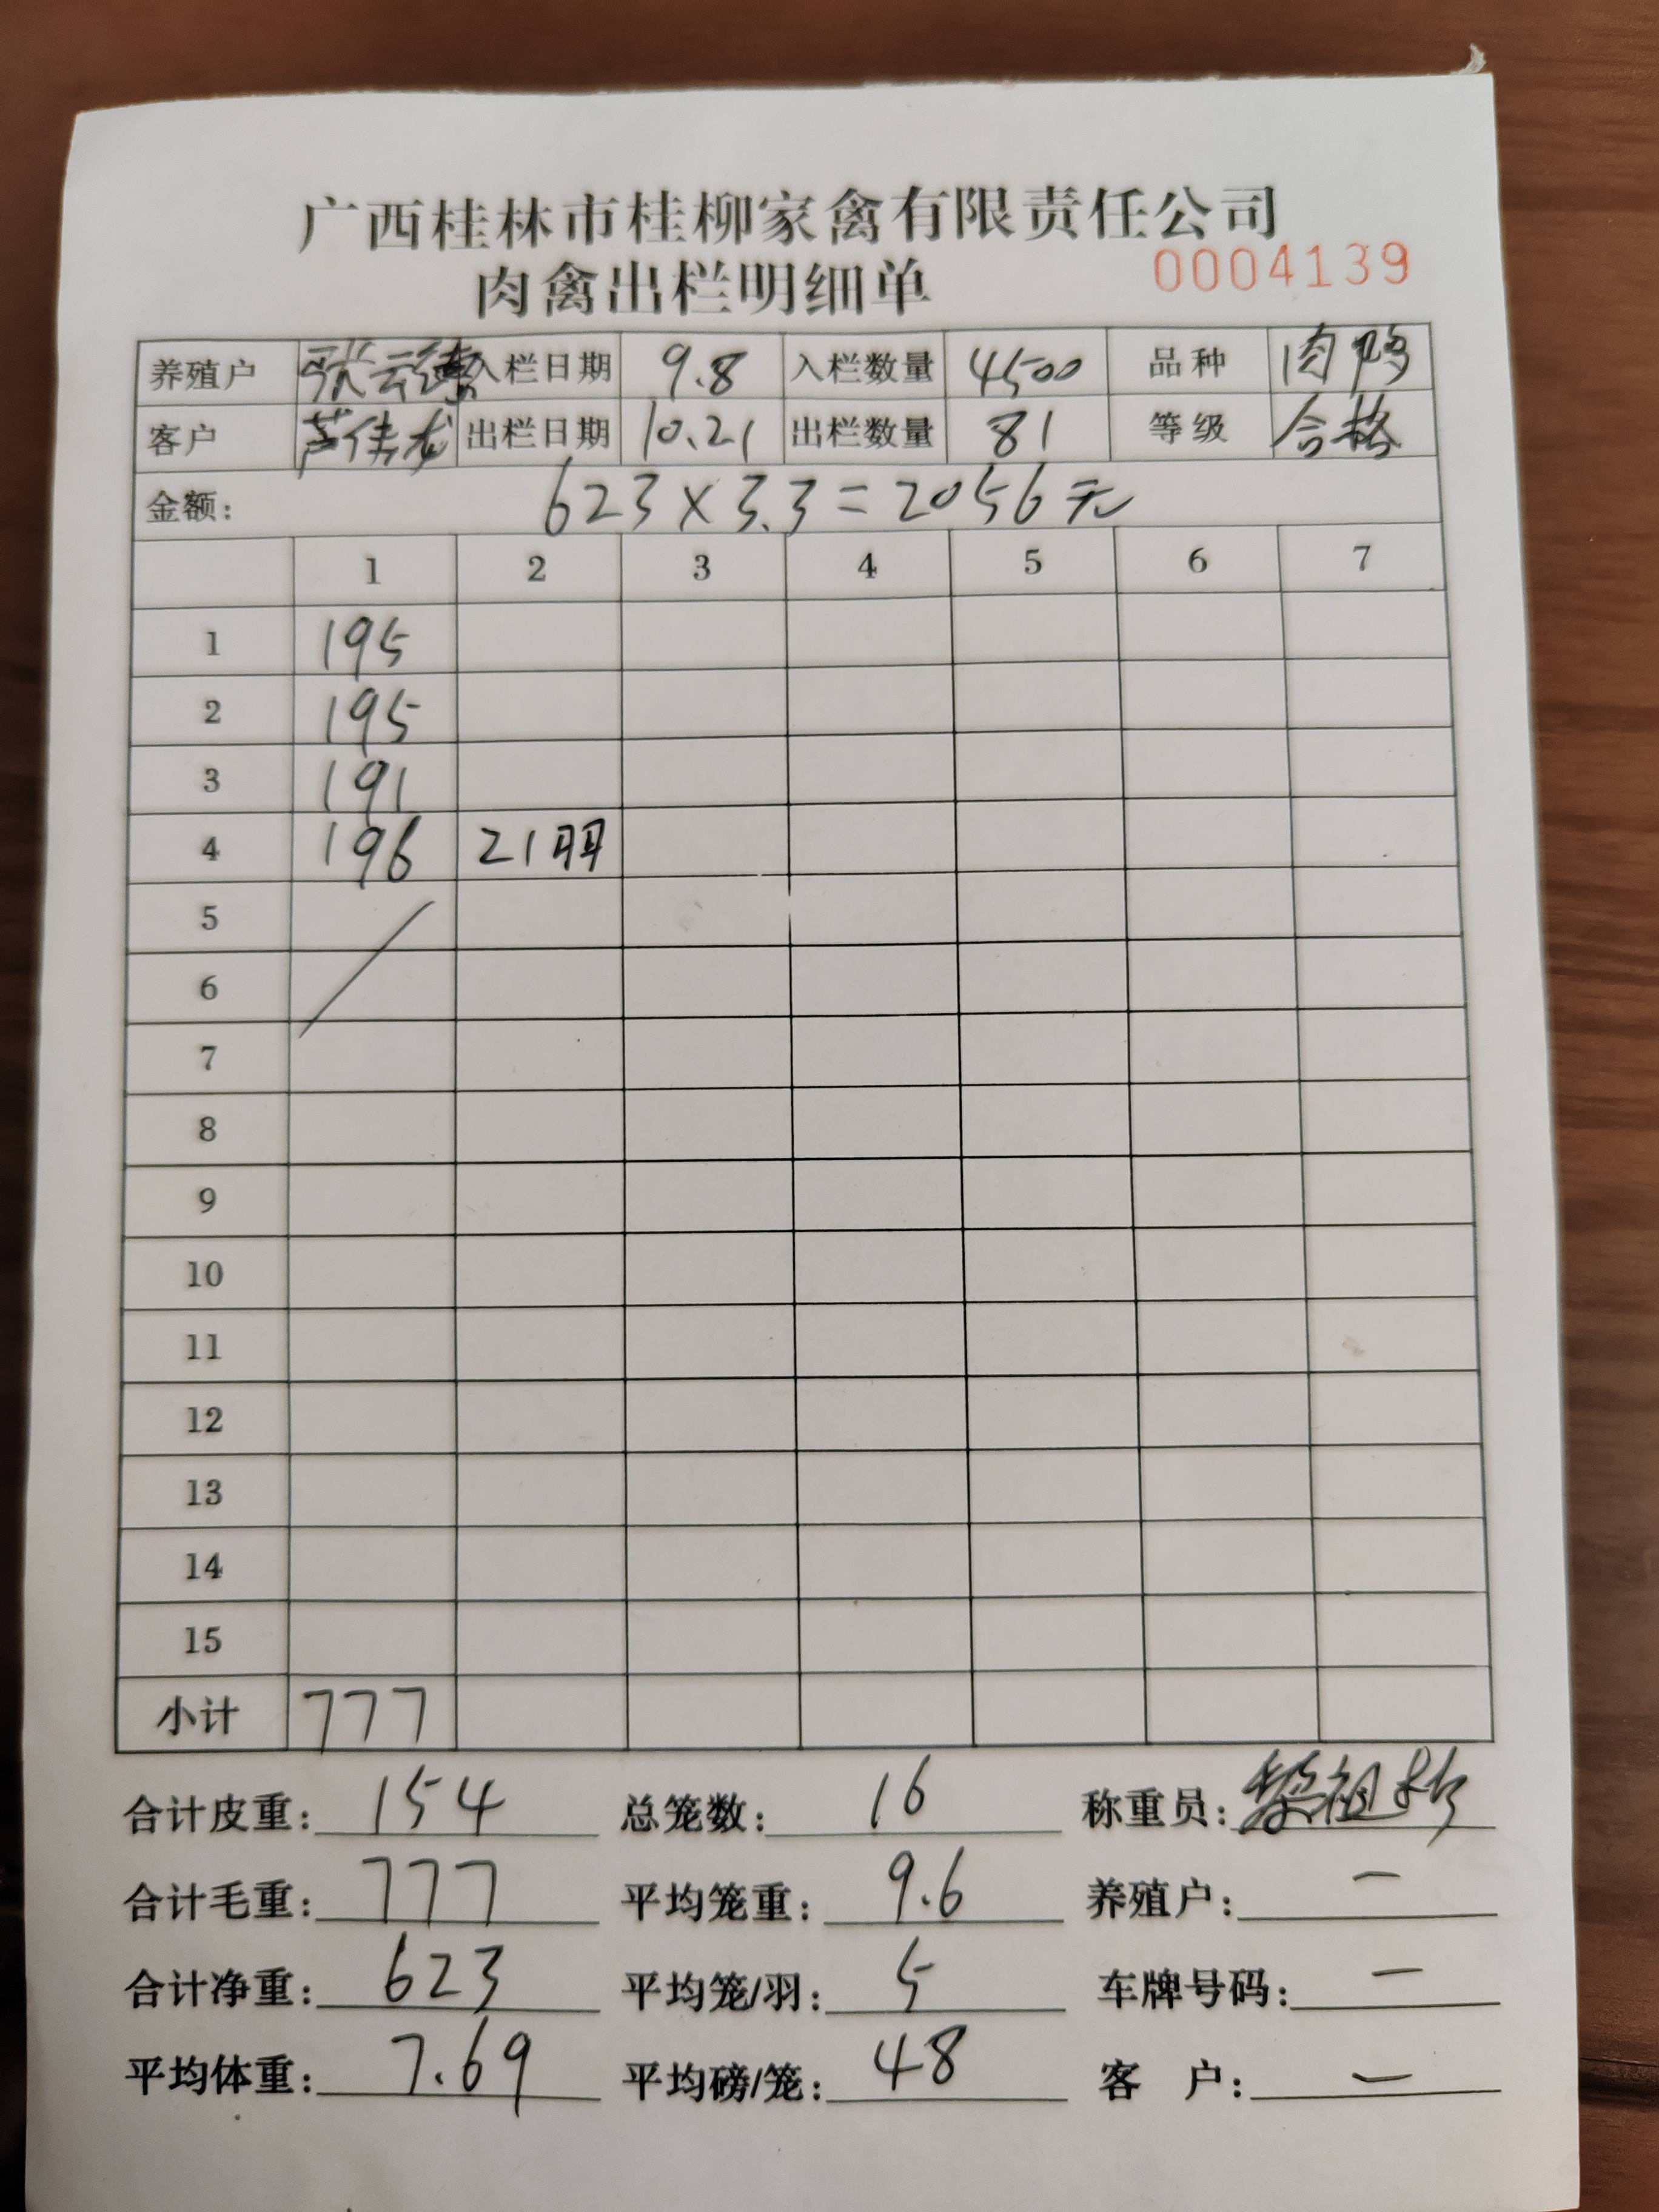 广西桂林市桂柳家禽有限责任公司
肉禽出栏明细单 0004139
养殖户 张云德 入栏日期 9.8 入栏数量 4500 品种 肉鸭
客户 芦佳龙 出栏日期 10.21 出栏数量 81 等级 合格
金额: 623×3.3=2056元
1 2 3 4 5 6 7
1 195
2 195
3 191
4 196 21羽
5
6
7
8
9
10
11
12
13
14
15
小计 777
合计皮重: 154 总笼数: 16 称重员: 黎祖
合计毛重: 777 平均笼重: 9.6 养殖户: 一
合计净重: 623 平均笼/羽: 5 车牌号码: 一
平均体重: 7.69 平均磅/笼: 48 客 户: 一